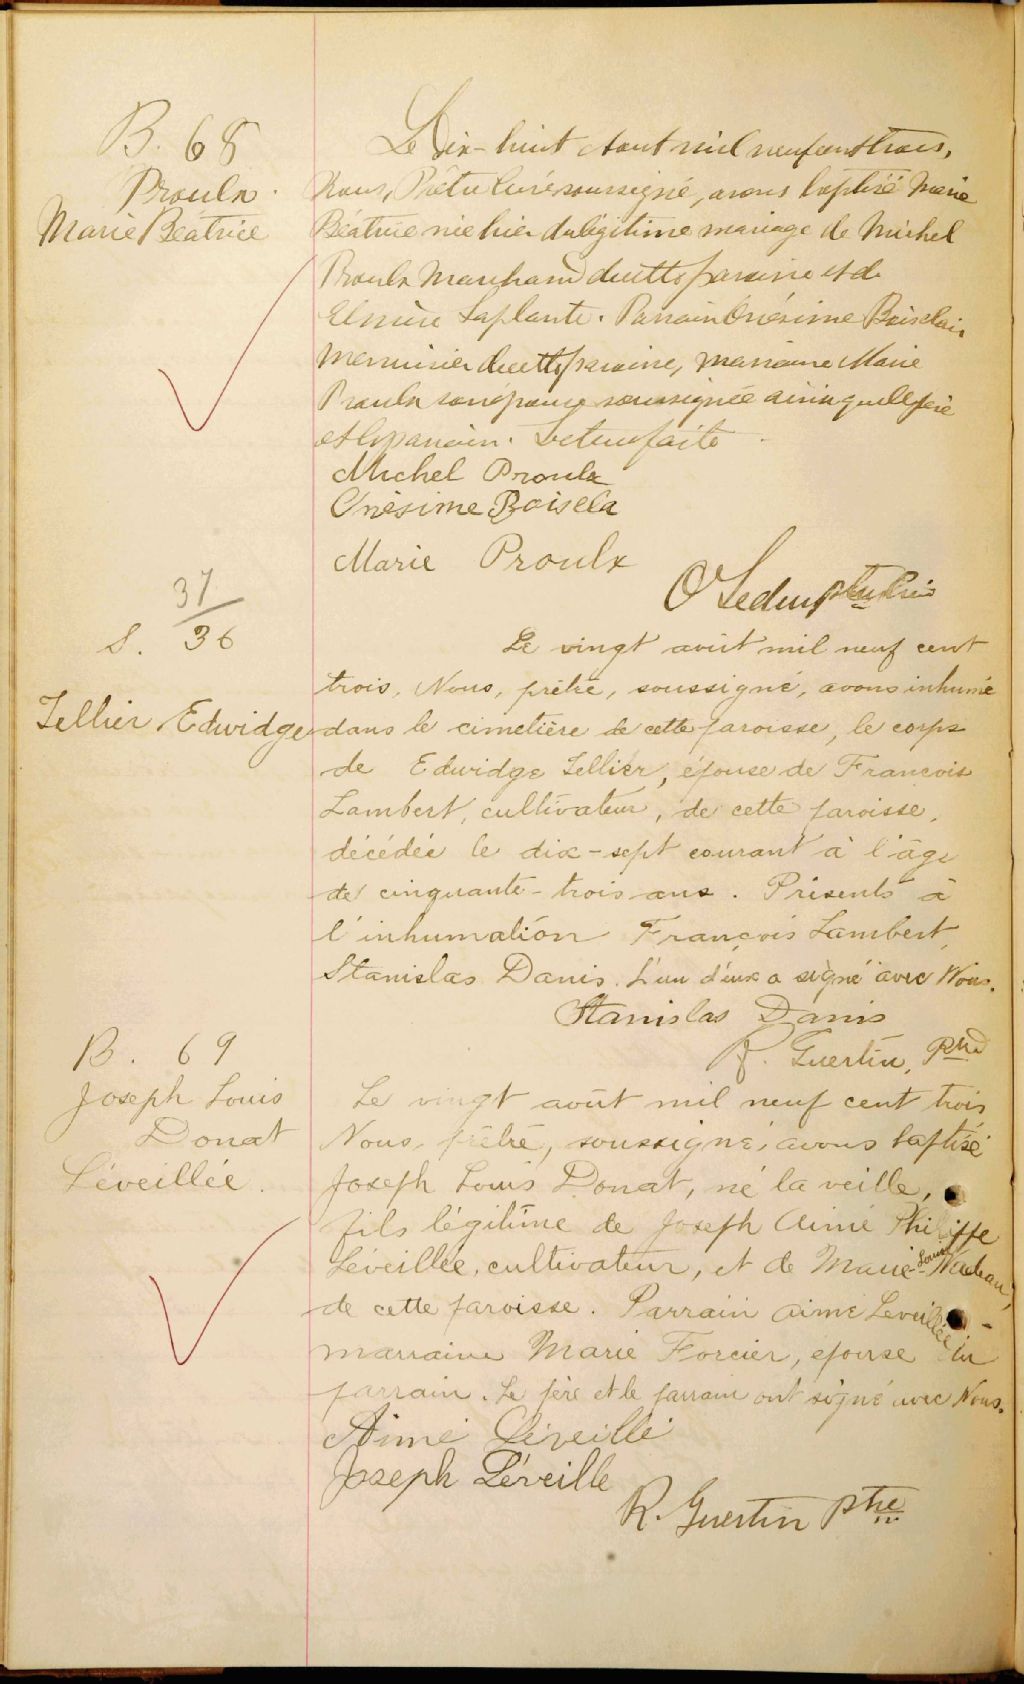 B. 68
Proulx
Marie Béatrice
Le Dix-huit Aout mil neuf cent trois,
Nous, Prêtre Curé soussigné, avons baptisé Marie
Béatrice née hier du légitime mariage de Michel
Proulx Marchand de cette paroisse et de
Elmire Laplante. Parrain Onésime Boisclair
Menuisier de cette paroisse, marraine Marie
Proulx son épouse soussignée ainsi que le père
et le parrain. Lecture faite.
Michel Proulx
Onésime Boiscla
Marie Proulx
ptre
S. 37/36
Tellier Edwidge
Le vingt août mil neuf cent
trois, Nous, prêtre, soussigné, avons inhumé
dans le cimetière de cette paroisse, le corps
de Edwidge Tellier, épouse de François
Lambert, cultivateur, de cette paroisse,
décédée le dix-sept courant à l'âge
de cinquante-trois ans. Présents à
l'inhumation François Lambert,
Stanislas Danis. L'un d'eux a signé avec Nous.
Stanislas Danis
R. Guertin, Ptre
B. 69
Joseph Louis
Donat
Léveillée.
Le vingt août mil neuf cent trois,
Nous, prêtre, soussigné, avons baptisé
Joseph Louis Donat, né la veille,
fils légitime de Joseph Aimé Philippe
Léveillée, cultivateur, et de Marie-Louise Nadeau,
de cette paroisse. Parrain Aimé Léveillée -
marraine Marie Forcier, épouse du
parrain. Le père et le parrain ont signé avec Nous.
Aimé Léveillé
Joseph Léveille
R. Guertin ptre